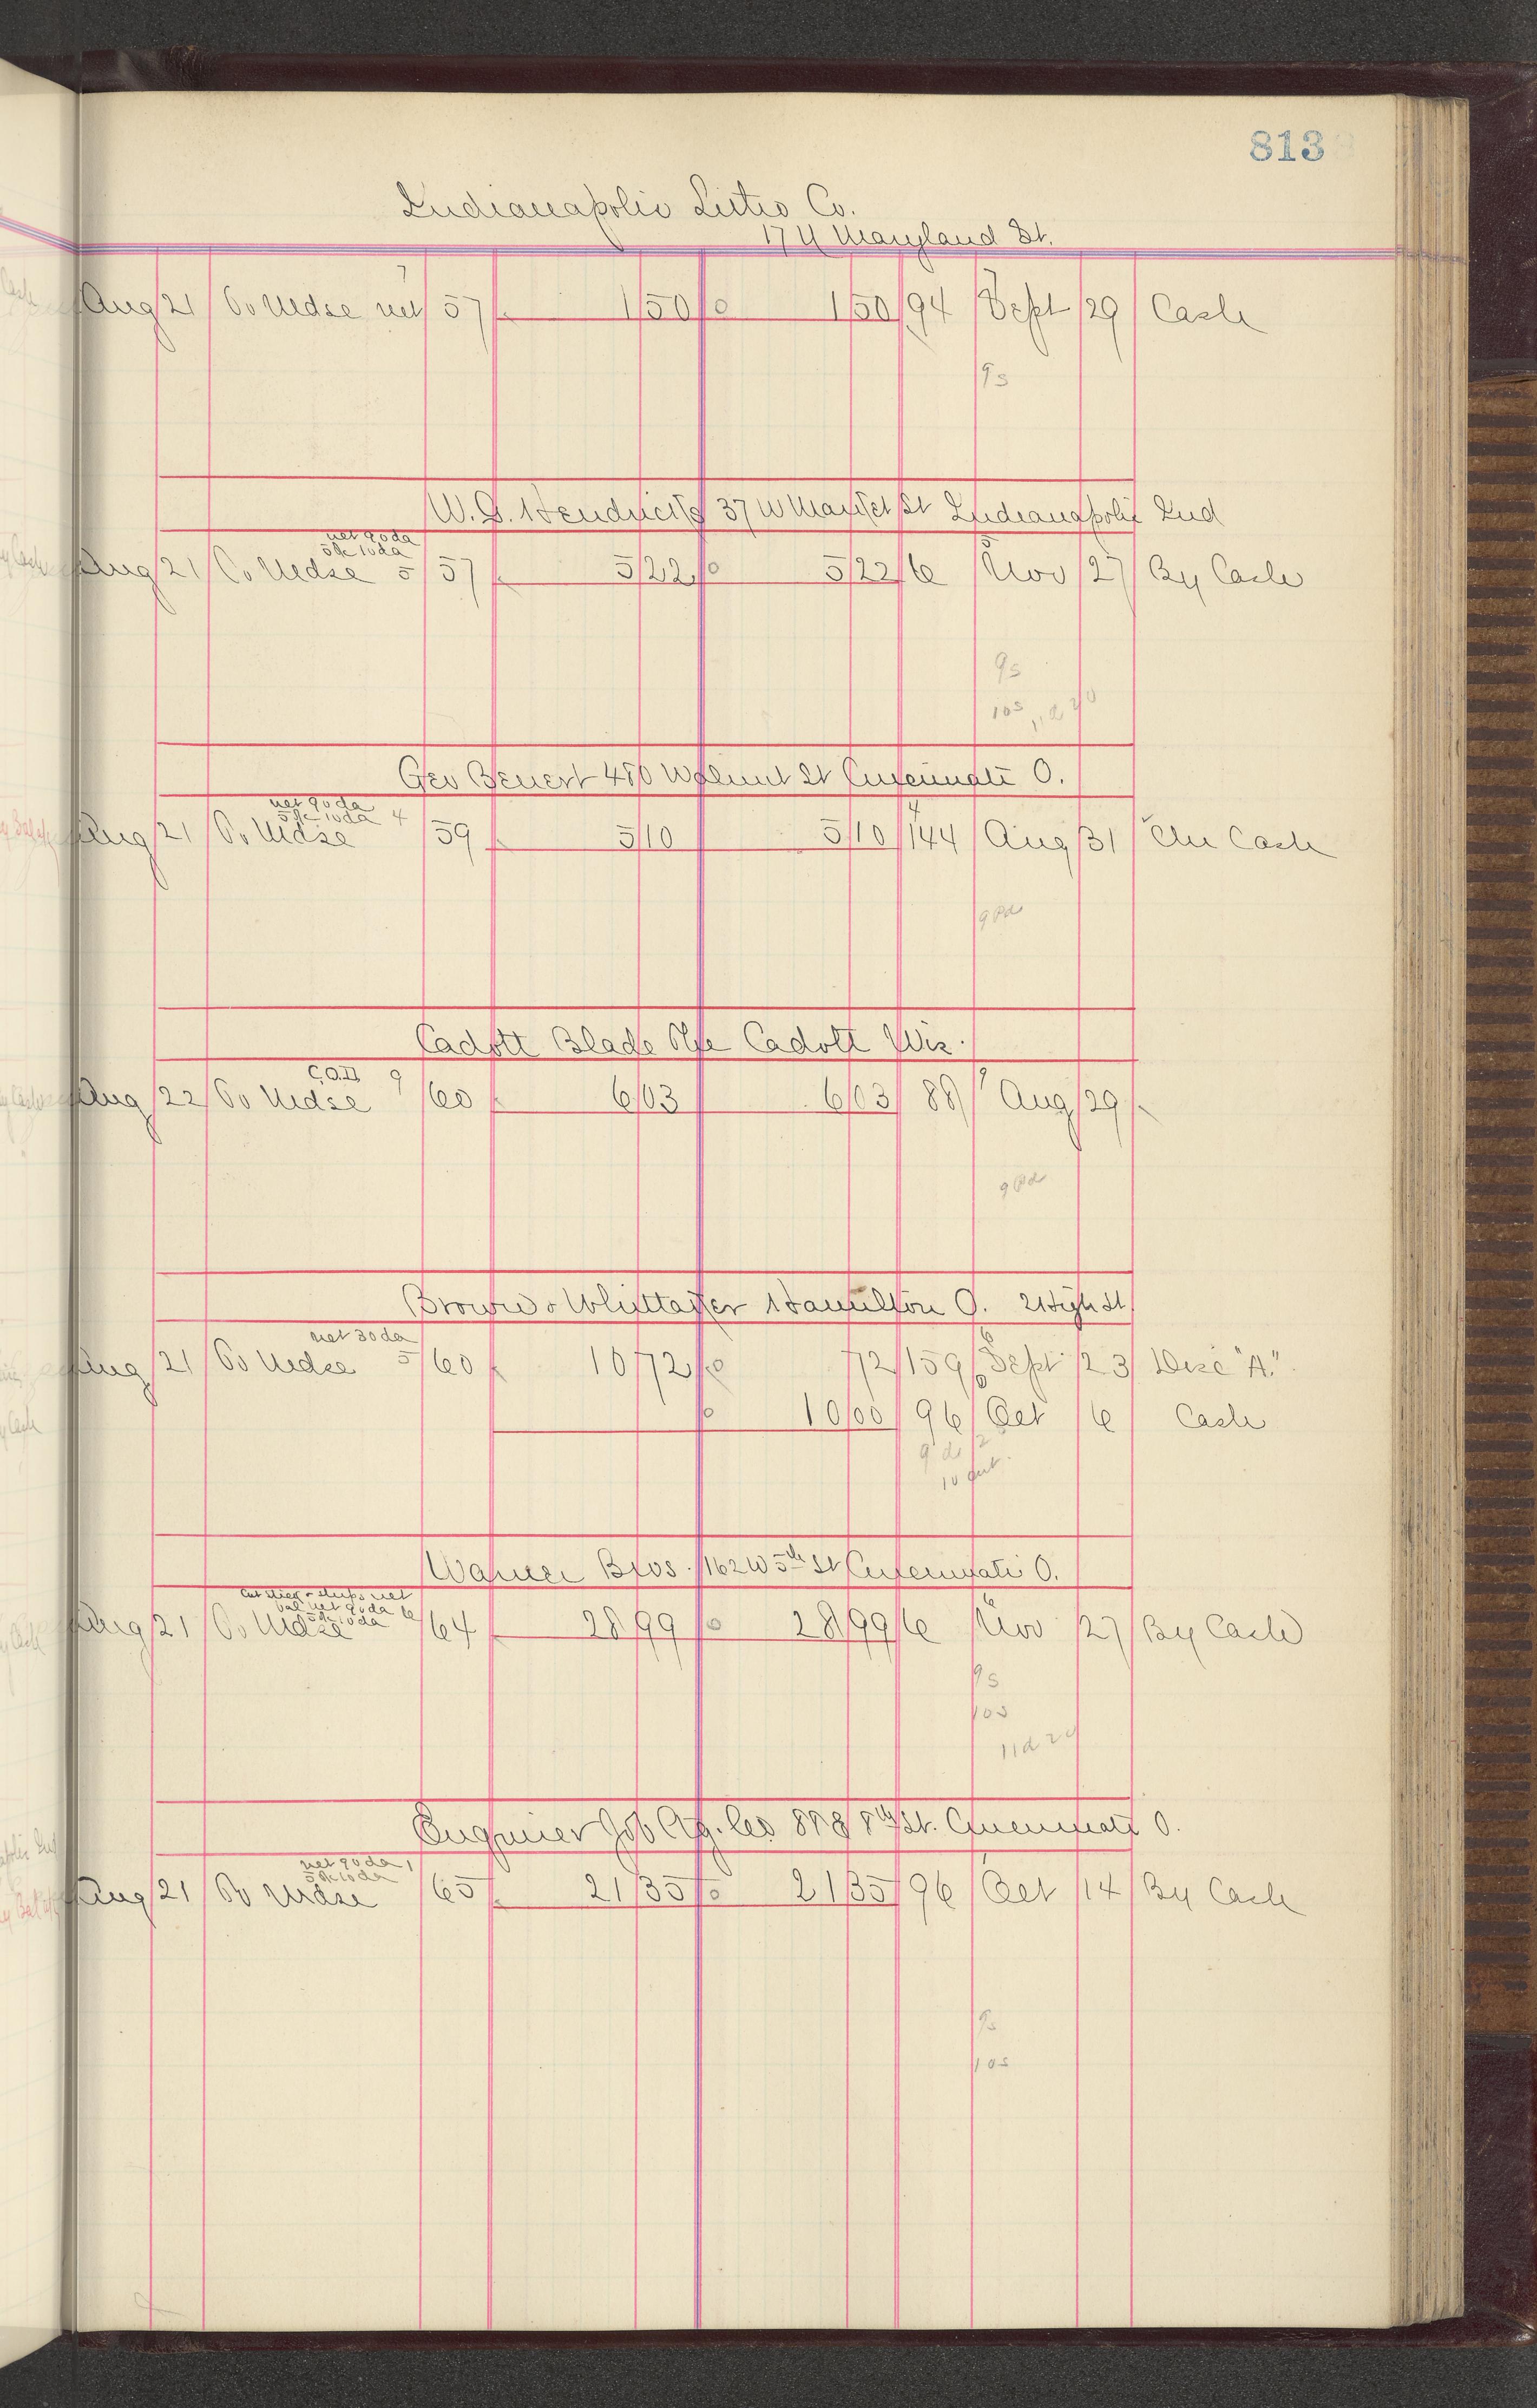 813
Indianapolis Litho Co.
17 W Maryland St.
7
Aug 21 To Mdse net 57 1 50 1 50 94 Sept 29 Cash
9s
W. G. Hendricks 37 W Market St Indianapolis Ind
net 90 da
5% 10 da
Aug 21 To Mdse 5 57 5 22 5 22 6 Nov 27 By Cash
9s
10s 11 d 20
Geo Benert 480 Walnut St Cincinnati O.
net 90 da
5% 10 da 4
Aug 21 To Mdse 59 5 10 5 10 144 Aug 31 Cash
9 Pd
Cadott Blade Ofc Cadott Wis.
C.O.D. 9
Aug 22 To Mdse 60 6 03 6 03 88 Aug 29
9 Pd
Brown & Whittaker Hamilton O. 2 High St
net 30 da
Aug 21 To Mdse 5 60 10 72 72 159 Sept 23 Disc "A."
10 00 96 Oct 6 Cash
9 d
10
Warner Bros. 162 W 5th St Cincinnati O.
net
bal net 90 da 6
5% 10 da
Aug 21 To Mdse 64 28 99 28 99 6 Nov 27 By Cash
9s
10s
11 d 20
Enquirer Job Ptg. Co 8th St. Cincinnati O.
net 90 da 1
5% 10 da
Aug 21 To Mdse 65 21 35 21 35 96 Oct 14 By Cash
9s
10s